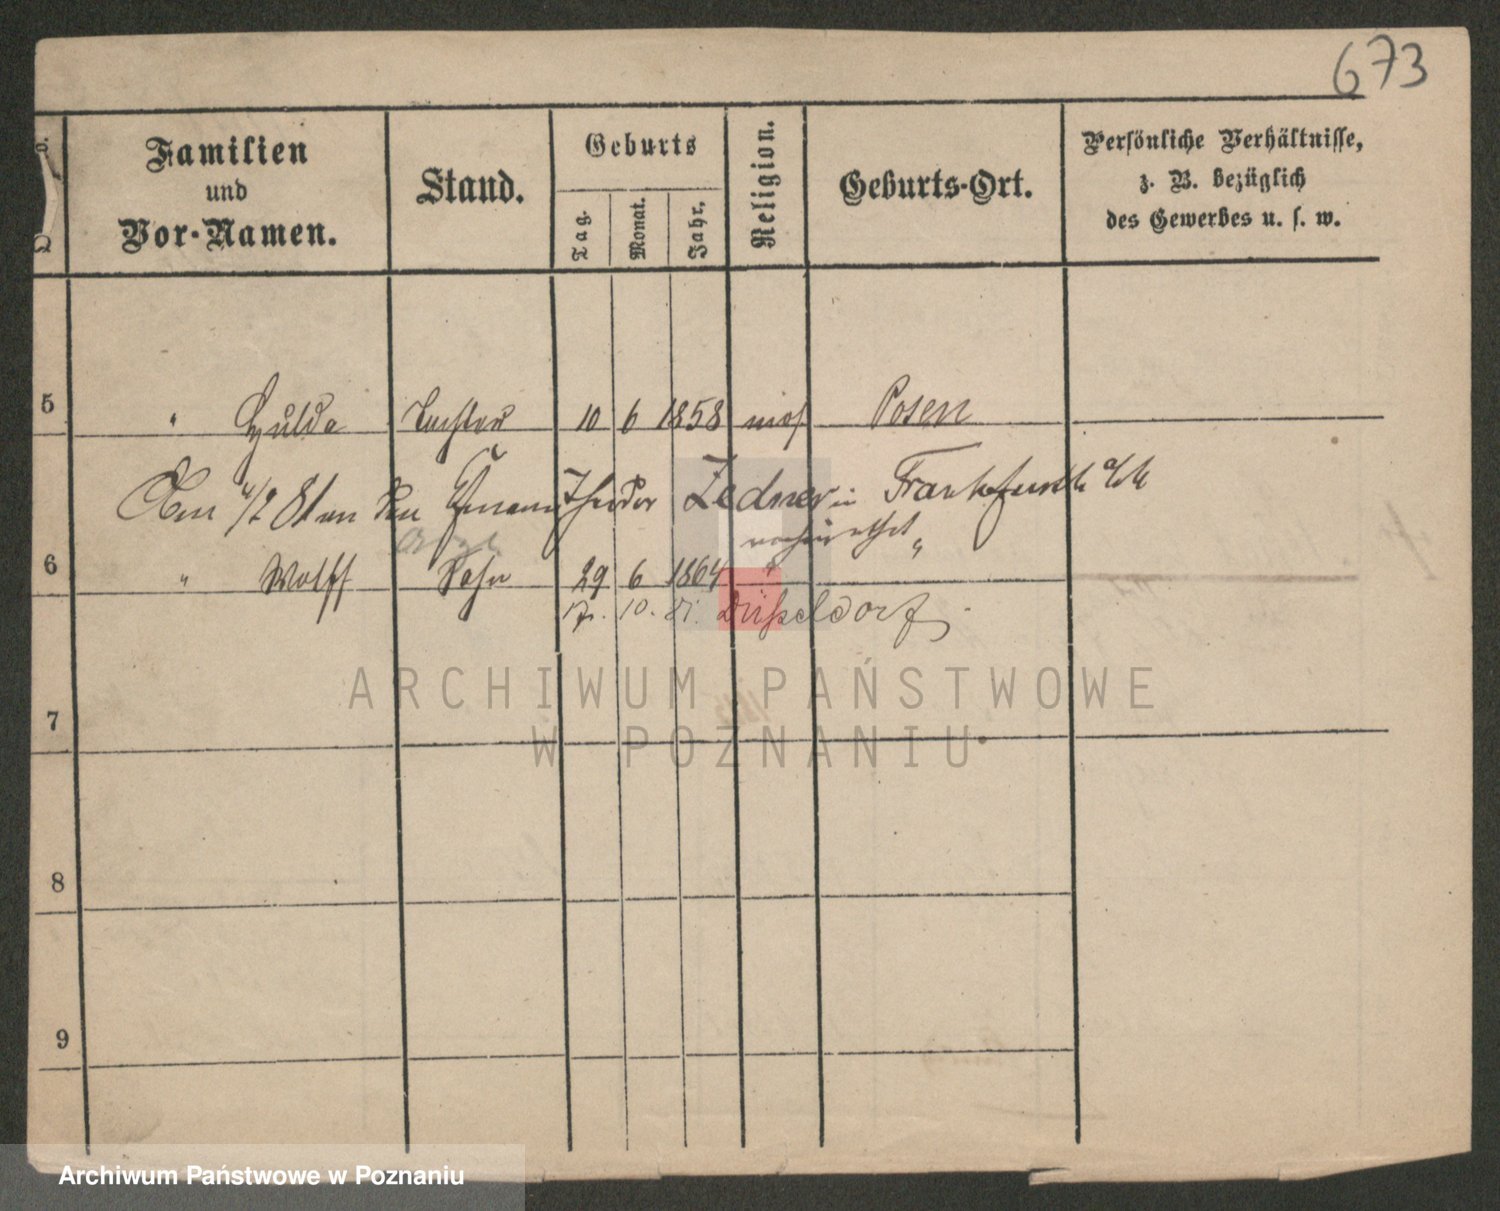 673
Familien
und
Vor-Namen.
Stand.
Geburts
Tag.
Monat.
Jahr.
Religion.
Geburts-Ort.
Persönliche Verhältnisse,
z. B. bezüglich
des Gewerbes u. s. w.
5 " Hulda Tochter 10 6 1858 mos. Posen
Am 4/2 81 an den Theodor Zedner in Frankfurth a/M
verheirathet
6 " Wolff Sohn 29 6 1864 " "
17. 10. 81. Düsseldorf
7
8
9
ARCHIWUM PAŃSTWOWE
W POZNANIU
Archiwum Państwowe w Poznaniu